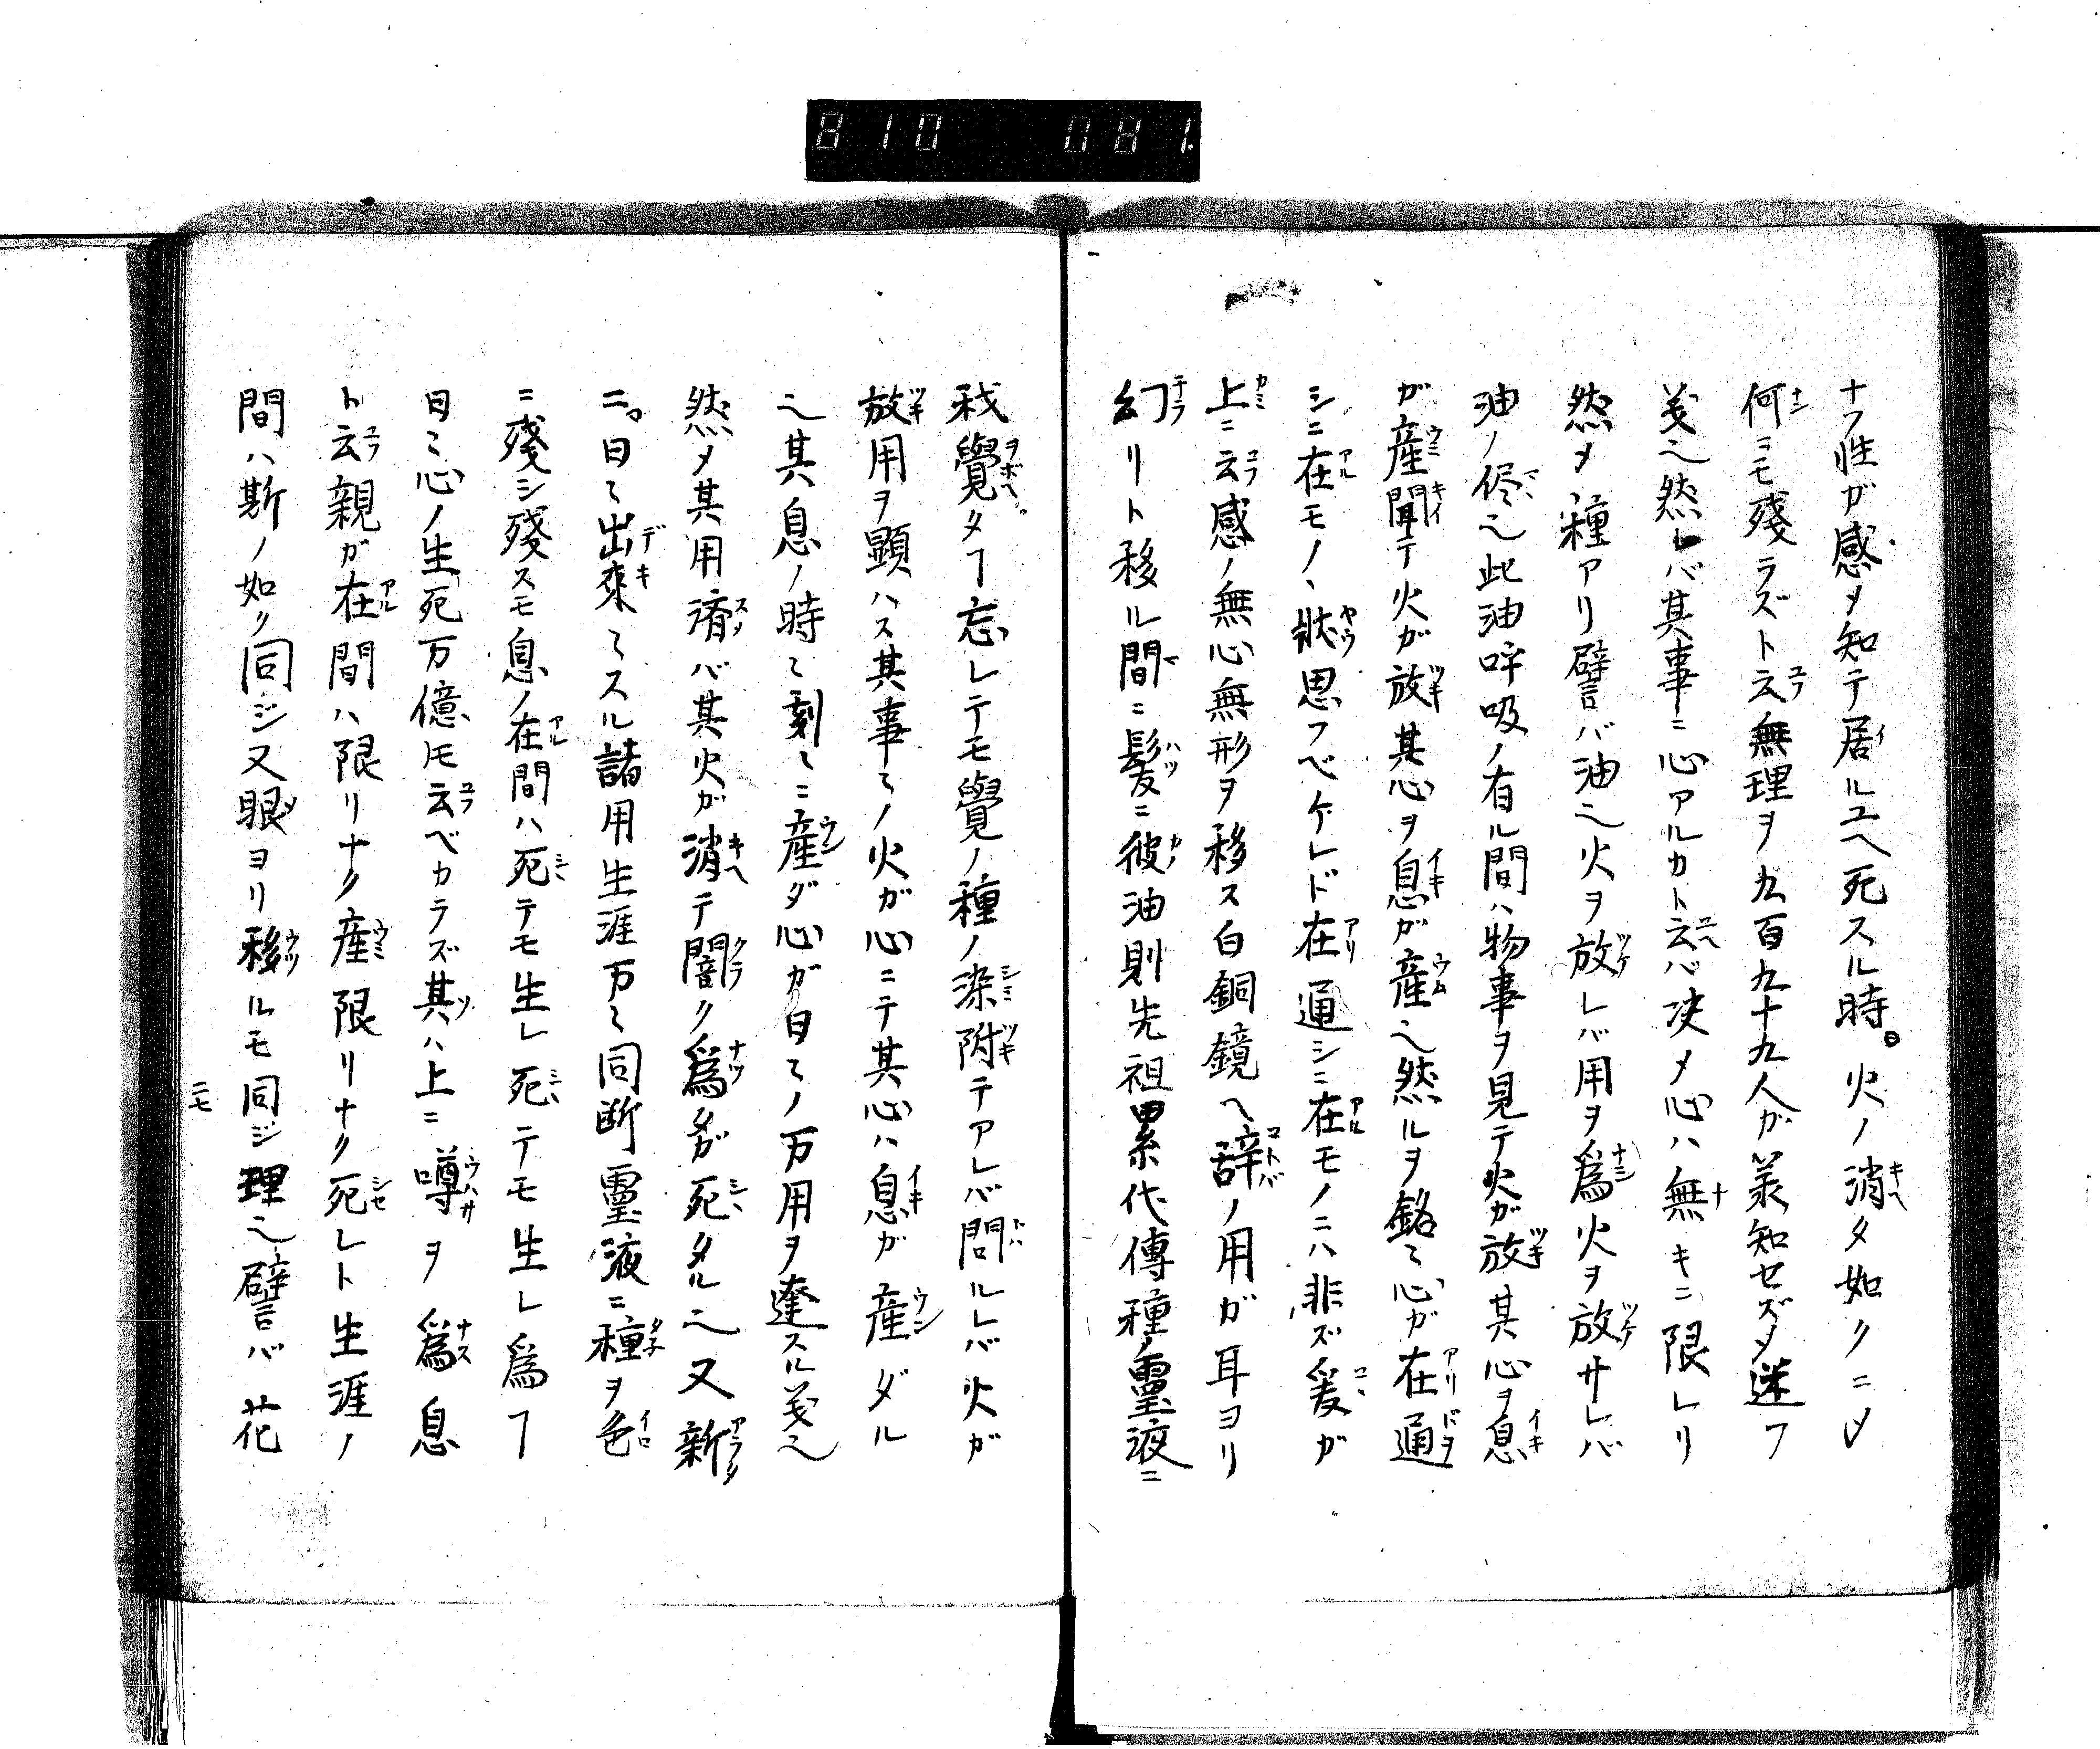 810 081.
ナフ性ガ感〆知テ居ルユヘ死スル時。火ノ消タ如クニ〆
何ニモ殘ラズト云無理ヲ九百九十九人ガ羕知セズ〆迷フ
㐧〻然レバ其事ニ心アルカト云バ决〆心ハ無キニ限レリ
然〆種アリ譬バ油〻火ヲ放レバ用ヲ爲火ヲ放サレバ
油ノ侭〻此油呼吸ノ有ル間ハ物事ヲ見テ火ガ放其心ヲ息
ガ産聞テ火ガ放其心ヲ息ガ産〻然ルヲ銘〻心ガ在通
シニ在モノヽ狀思フベケレド在通シニ在モノニハ非ズ爰ガ
上ニ云感ノ無心無形ヲ移ス白銅鏡ヘ辞ノ用ガ耳ヨリ
幻リト移ル間ニ髪ニ彼油則先祖累代傳種ノ靈液ニ
我覺タヿ忘レテモ覺ノ種ノ染附テアレバ問ルレバ火ガ
放用ヲ顕ハス其事〻ノ火ガ心ニテ其心ハ息ガ産ダル
〻其息ノ時〻刻〻ニ産ダ心ガ日〻ノ万用ヲ達スル㐧〻
然〆其用濟バ其火ガ消テ闇ク爲タガ死タル〻又新
ニ。日〻出來〻スル諸用生涯万〻同断靈液ニ種ヲ色
ニ殘シ殘スモ息ノ在間ハ死テモ生レ死テモ生レ爲ヿ
日〻心ノ生死万億モ云ベカラズ其ハ上ニ噂ヲ爲息
ト云親ガ在間ハ限リナク産限リナク死レト生涯ノ
間ハ斯ノ如ク同ジ又眼ヨリ移ルモ同ジ理〻譬バ花
二モ